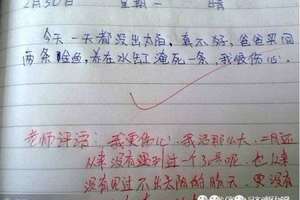 2月30日 星期一 晴
今天一天都没出太阳，真不好，爸爸买回
两条鱼，养在水缸淹死一条，我很伤心。
老师评语：我更伤心，我活那么大，二月还
从来没有碰到过一个30号呢，也从来
没有见过不出太阳的晴天，更没有